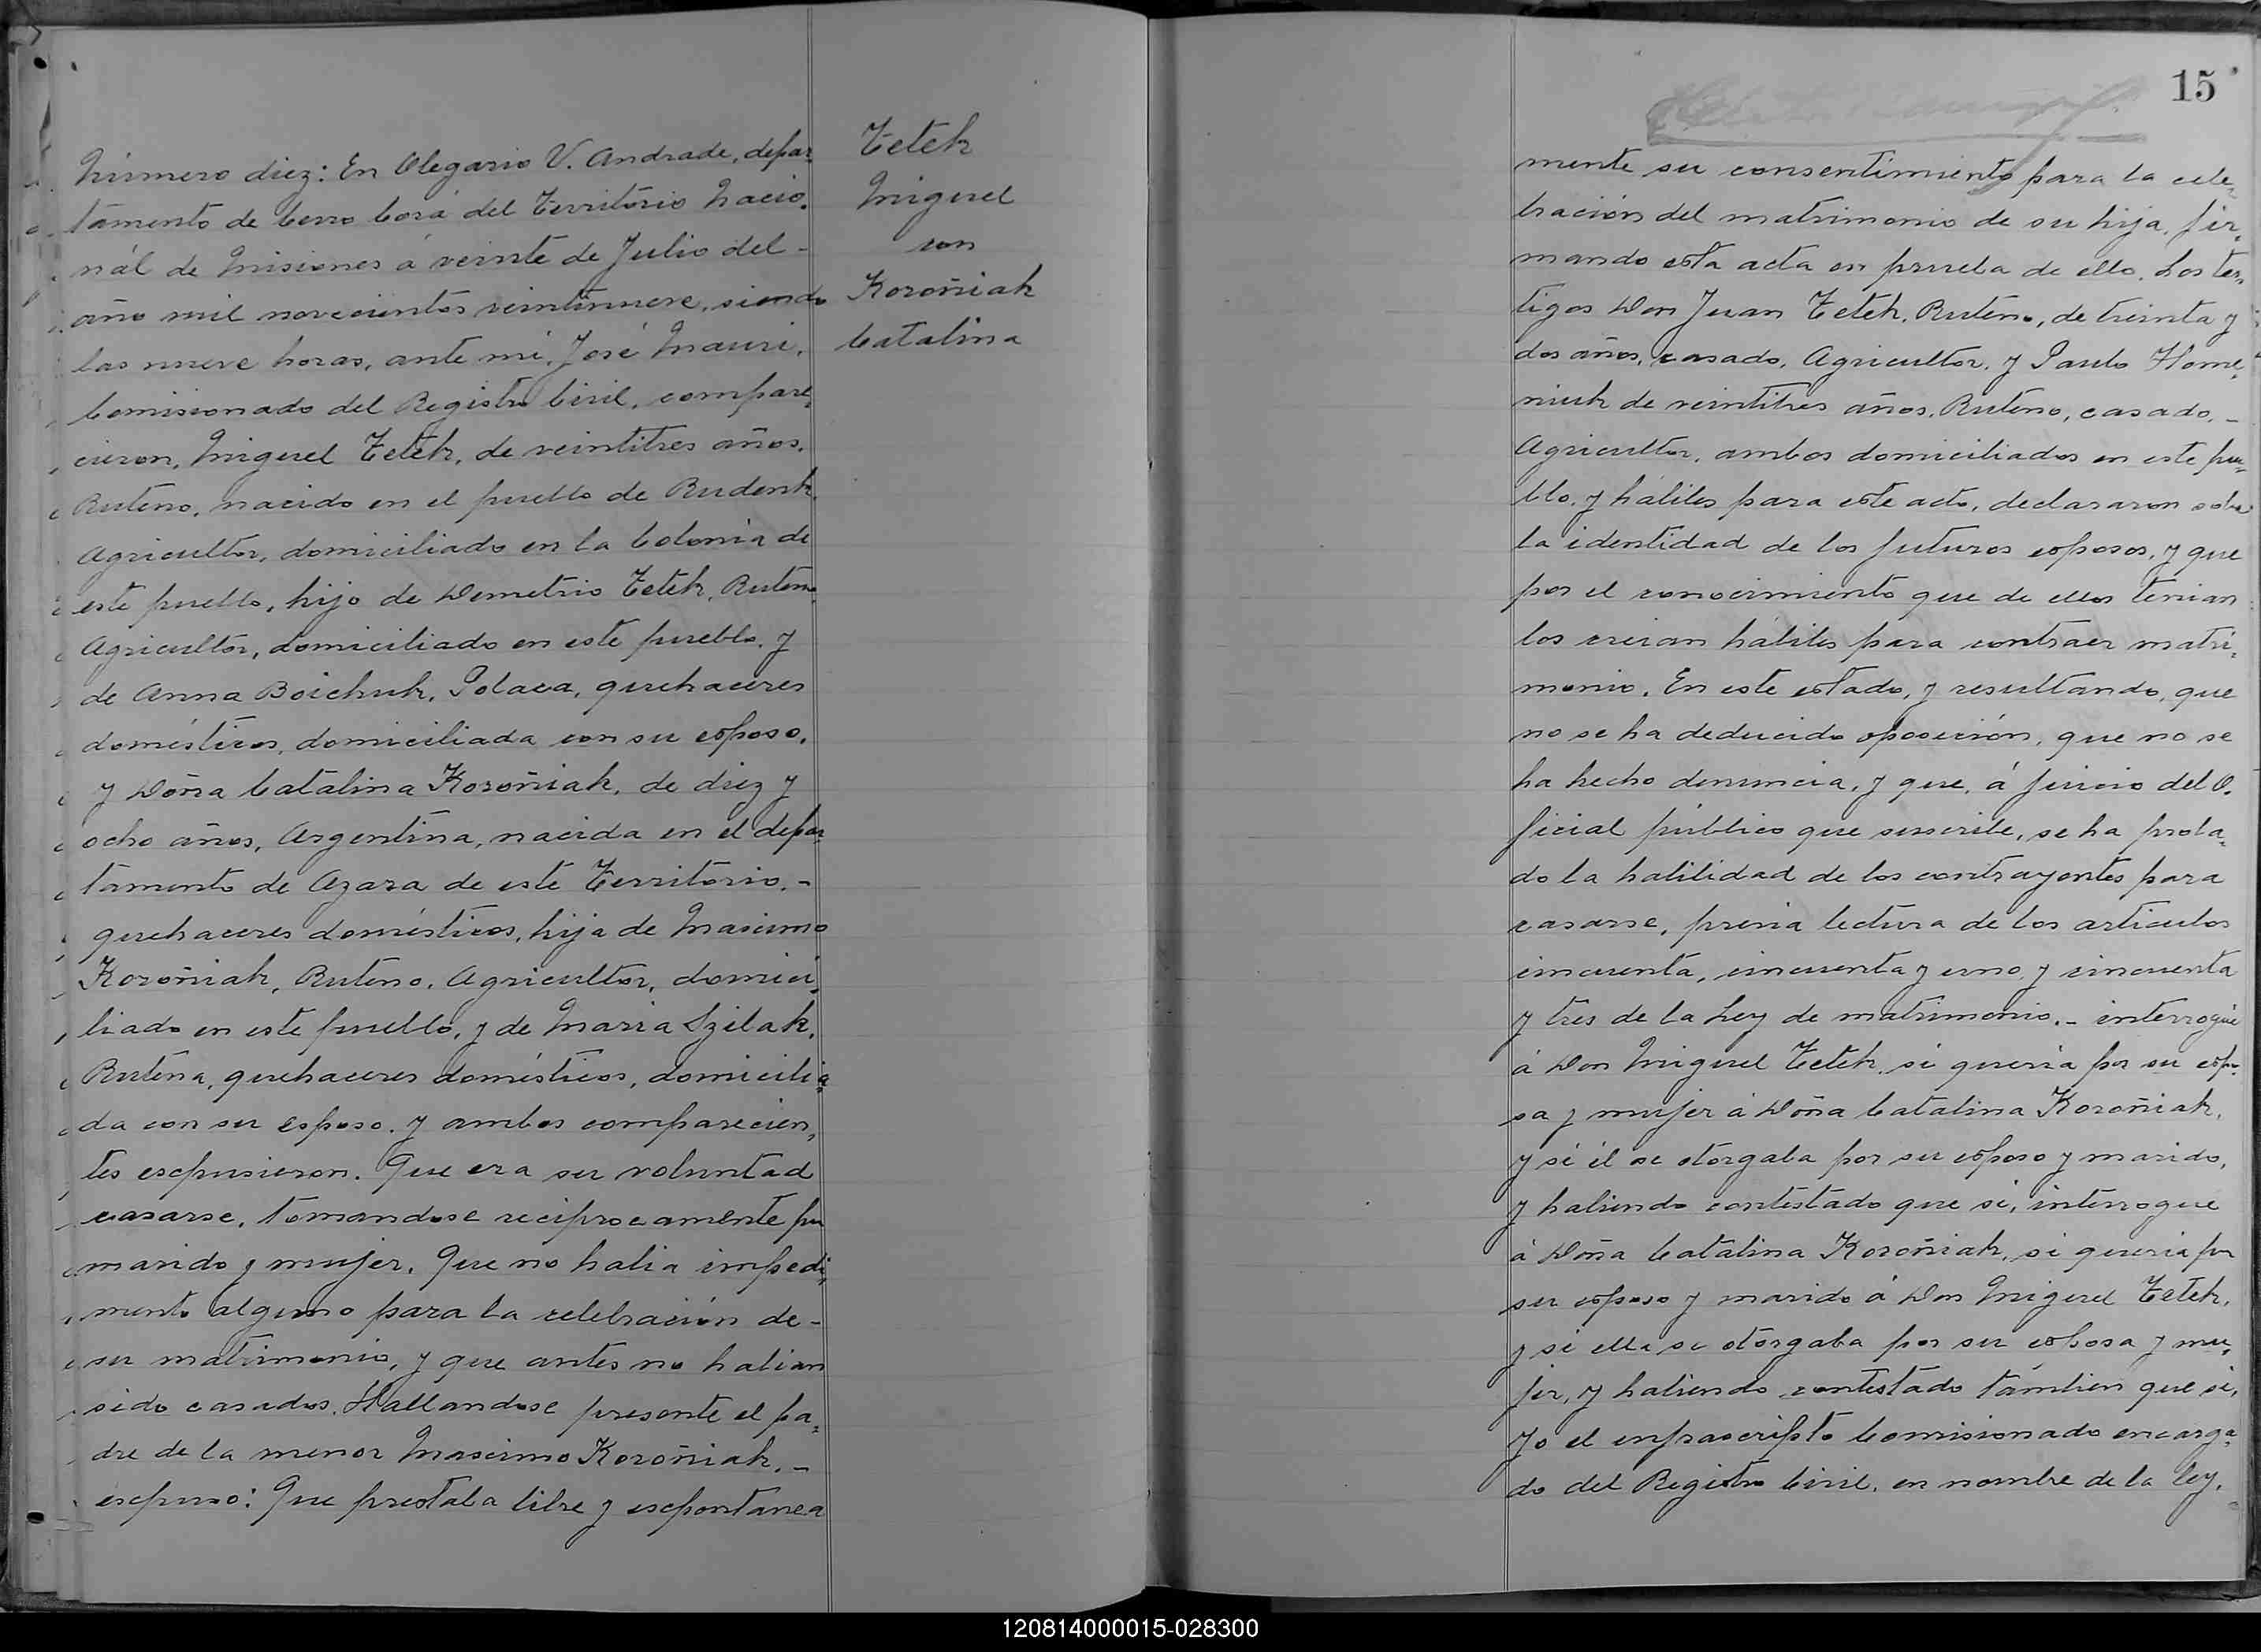 Número diez: En Olegario V. Andrade, depar-
tamento de Cerro Corá del Territorio Nacio-
nál de Misiones á veinte de Julio del -
año mil novecientos veintinueve, siendo
las nueve horas, ante mí, José Mauri,
Comisionado del Registro Civil, compare-
cieron, Miguel Tetek, de veintitres años,
Ruteno, nacido en el pueblo de Rudenk
Agricultor, domiciliado en la Colonia de
este pueblo, hijo de Demetrio Tetek, Ruteno
Agricultor, domiciliado en este pueblo, y
de Anna Boichuk, Polaca, quehaceres
domésticos, domiciliada con su esposo,
y Doña Catalina Koroñiak, de diez y
ocho años, Argentina, nacida en el depar-
tamento de Azara de este Territorio, -
quehaceres domésticos, hija de Macsimo
Koroñiak, Ruteno, Agricultor, domici-
liado en este pueblo, y de Maria Szilak,
Rutena, quehaceres domésticos, domicilia-
da con su esposo. y ambos comparecien-
tes escpusieron. Que era su voluntad
casarse, tomandose reciprocamente por
marido y mujer. Que no habia impedi-
mento alguno para la celebración de -
su matrimonio, y que antes no habian
sido casados. Hallandose presente el pa-
dre de la menor Macsimo Koroñiak, -
escpuso: Que prestaba libre y escpontanea
Tetek
Miguel
con
Koroñiak
Catalina
15
mente su consentimiento para la cele-
bración del matrimonio de su hija, fir-
mando esta acta en prueba de ello. Los tes-
tigos Don Juan Tetek, Ruteno, de treinta y
dos años, casado, Agricultor, y Paulo Home-
niuk de veintitres años, Ruteno, casado, -
Agricultor, ambos domiciliados en este pue-
blo, y hábiles para este acto, declararon sobre
la identidad de los futuros esposos, y que
por el conocimiento que de ellos tenian
los creian hábiles para contraer matri-
monio. En este estado, y resultando, que
no se ha deducido oposición, que no se
ha hecho denuncia, y que, á juicio del O-
ficial público que suscribe, se ha proba-
do la habilidad de los contrayentes para
casarse, previa lectura de los articulos
cincuenta, cincuenta y uno, y cincuenta
y tres de la Ley de matrimonio. - interrogué
á Don Miguel Tetek, si queria por su espo-
sa y mujer á Doña Catalina Koroñiak,
y si él se otorgaba por su esposo y marido,
y habiendo contestado que si, interrogue
á Doña Catalina Koroñiak, si queria por
su esposo y marido á Don Miguel Tetek,
y si ella se otorgaba por su esposa y mu-
jer, y habiendo contestado támbien que si,
Yo el enfrascripto Comisionado encarga-
do del Registro Civil, en nombre de la ley,
120814000015-028300